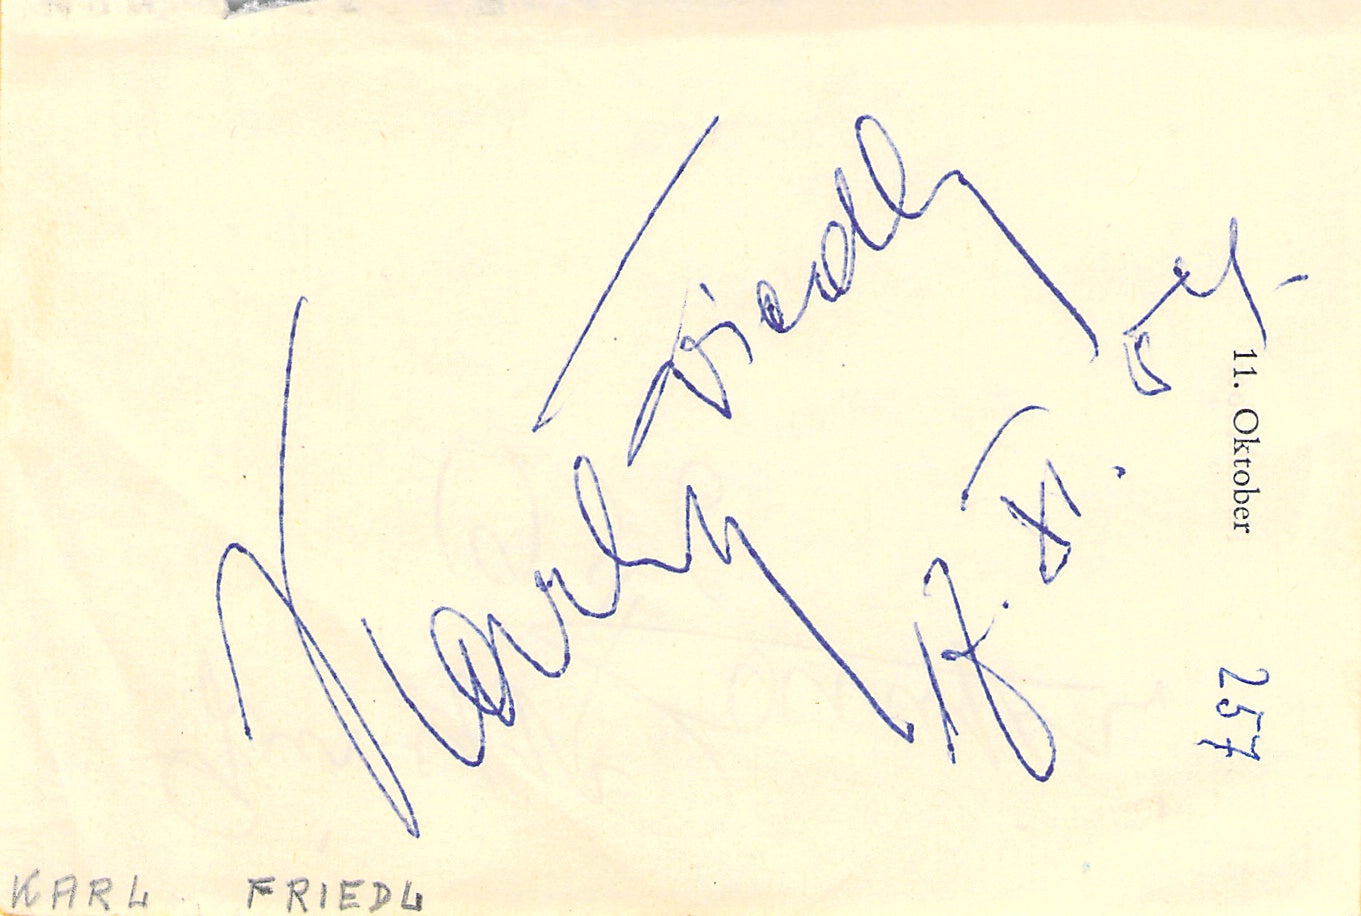 Karl Friedl
17. XI. 54.
11. Oktober
257
KARL FRIEDL